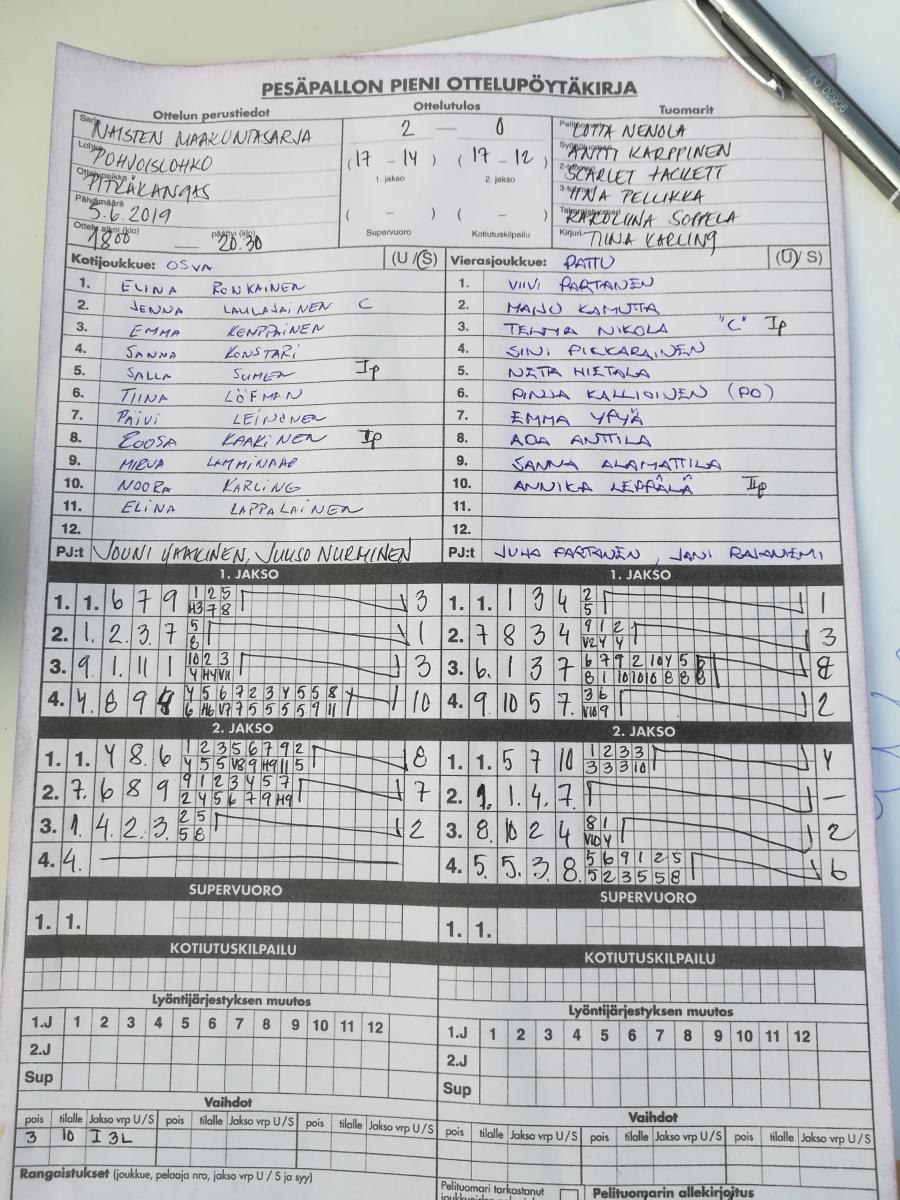 PESÄPALLON PIENI OTTELUPÖYTÄKIRJA
Ottelun perustiedot
NAISTEN MAAKUNTASARJA
POHJOISLOHKO
PITKÄKANGAS
Päivämäärä
5.6.2019
Ottelu alkoi (klo) päättyi (klo)
1800 — 20.30
Ottelutulos
2 — 0
(17 - 14) (17 - 12)
1. jakso 2. jakso
( - ) ( - )
Supervuoro Kotiutuskilpailu
Tuomarit
LOTTA NENOLA
ANTTI KARPPINEN
SCARLET HACKETT
PELLIKKA
KAROLIINA SOPPELA
Kirjuri TIINA KARLING
Kotijoukkue: OSVA (U / S)
1. ELINA RONKAINEN
2. JENNA LAULAJAINEN C
3. EMMA KEMPPAINEN
4. SANNA KONSTARI
5. SALLA SUMEN Ip
6. TIINA LÖFMAN
7. PÄIVI LEINONEN
8. ROOSA KAAKINEN Ip
9. MIRVA
10. NOORA KARLING
11. ELINA LAPPALAINEN
12.
PJ:t JOUNI JUUSO NURMINEN
Vierasjoukkue: PATTU (U / S)
1. VIIVI PARTANEN
2. MAIJU KAMUTTA
3. NIKOLA "C" Ip
4. SINI PIEKKARAINEN
5. NIETALA
6. PINJA KALLIOINEN (PO)
7. EMMA YPYÄ
8. ADA ANTTILA
9. SANNA ALAMATTILA
10. ANNIKA LEPPÄLÄ IIp
11.
12.
PJ:t JUHA PARTANEN, JANI RAJANIEMI
1. JAKSO
1. 1. 6 7 9 1 2 5 3
H3 7 8
2. 1. 2. 3. 7 5 1
8
3. 9. 1. 11 1 10 2 3 3
4 H4 VII
4. 4. 8 9 4 5 6 7 2 3 4 5 5 8 10
6 H6 V7 7 5 5 5 5 9 11
2. JAKSO
1. 1. 4 8. 6 1 2 3 5 6 7 9 2 8
4 5 5 V8 9 H9 11 5
2. 7. 6 8 9 9 1 2 3 4 5 7 7
2 4 5 6 7 9 H9
3. 1. 4. 2. 3. 2 5 2
5 8
4. 4.
SUPERVUORO
1. 1.
KOTIUTUSKILPAILU
Lyöntijärjestyksen muutos
1.J 1 2 3 4 5 6 7 8 9 10 11 12
2.J
Sup
Vaihdot
pois tilalle Jakso vrp U/S pois tilalle Jakso vrp U/S pois tilalle Jakso vrp U/S
3 10 I 3L
Rangaistukset (joukkue, pelaaja nro, jakso vrp U / S ja syy)
1. JAKSO
1. 1. 1 3 4 2 1
5
2. 7 8 3 4 9 1 2 3
V2 4 4
3. 6. 1 3 7 6 7 9 2 10 4 5 8
8 1 10 10 10 8 8
4. 9. 10 5 7. 3 6 2
V10 9
2. JAKSO
1. 1. 5 7 10 1 2 3 3 4
3 3 3 10
2. 1. 1. 4. 7. —
3. 8. 10 2 4 8 1 2
V10 4
4. 5. 5. 3. 8. 5 6 9 1 2 5 6
5 2 3 5 5 8
SUPERVUORO
1. 1.
KOTIUTUSKILPAILU
Lyöntijärjestyksen muutos
1.J 1 2 3 4 5 6 7 8 9 10 11 12
2.J
Sup
Vaihdot
pois tilalle Jakso vrp U/S pois tilalle Jakso vrp U/S pois tilalle Jakso vrp U/S
Pelituomari tarkastanut
Pelituomarin allekirjoitus